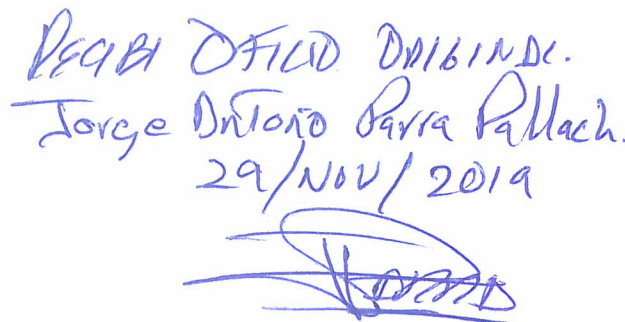 RECIBI OFICIO ORIGINAL.
Jorge Antonio Parra Pallach.
29/NOV/2019